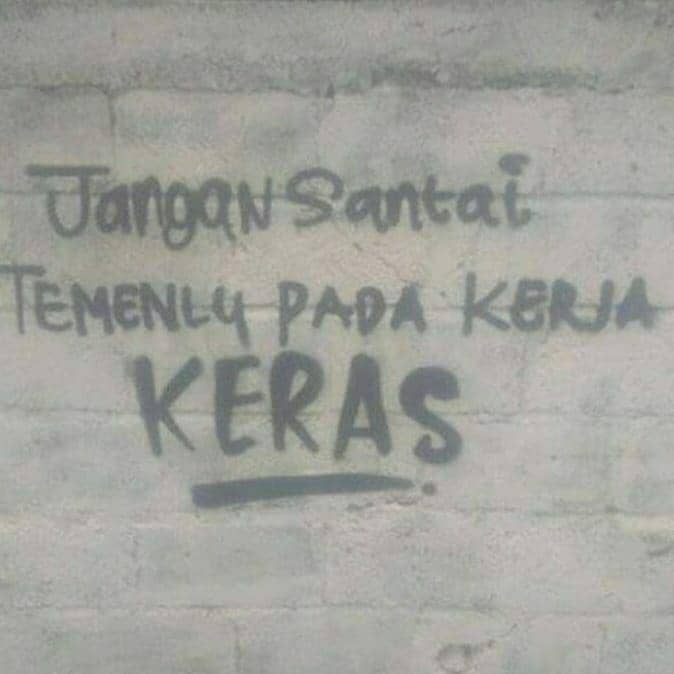 Jangan Santai
TEMENLU PADA KERJA
KERAS